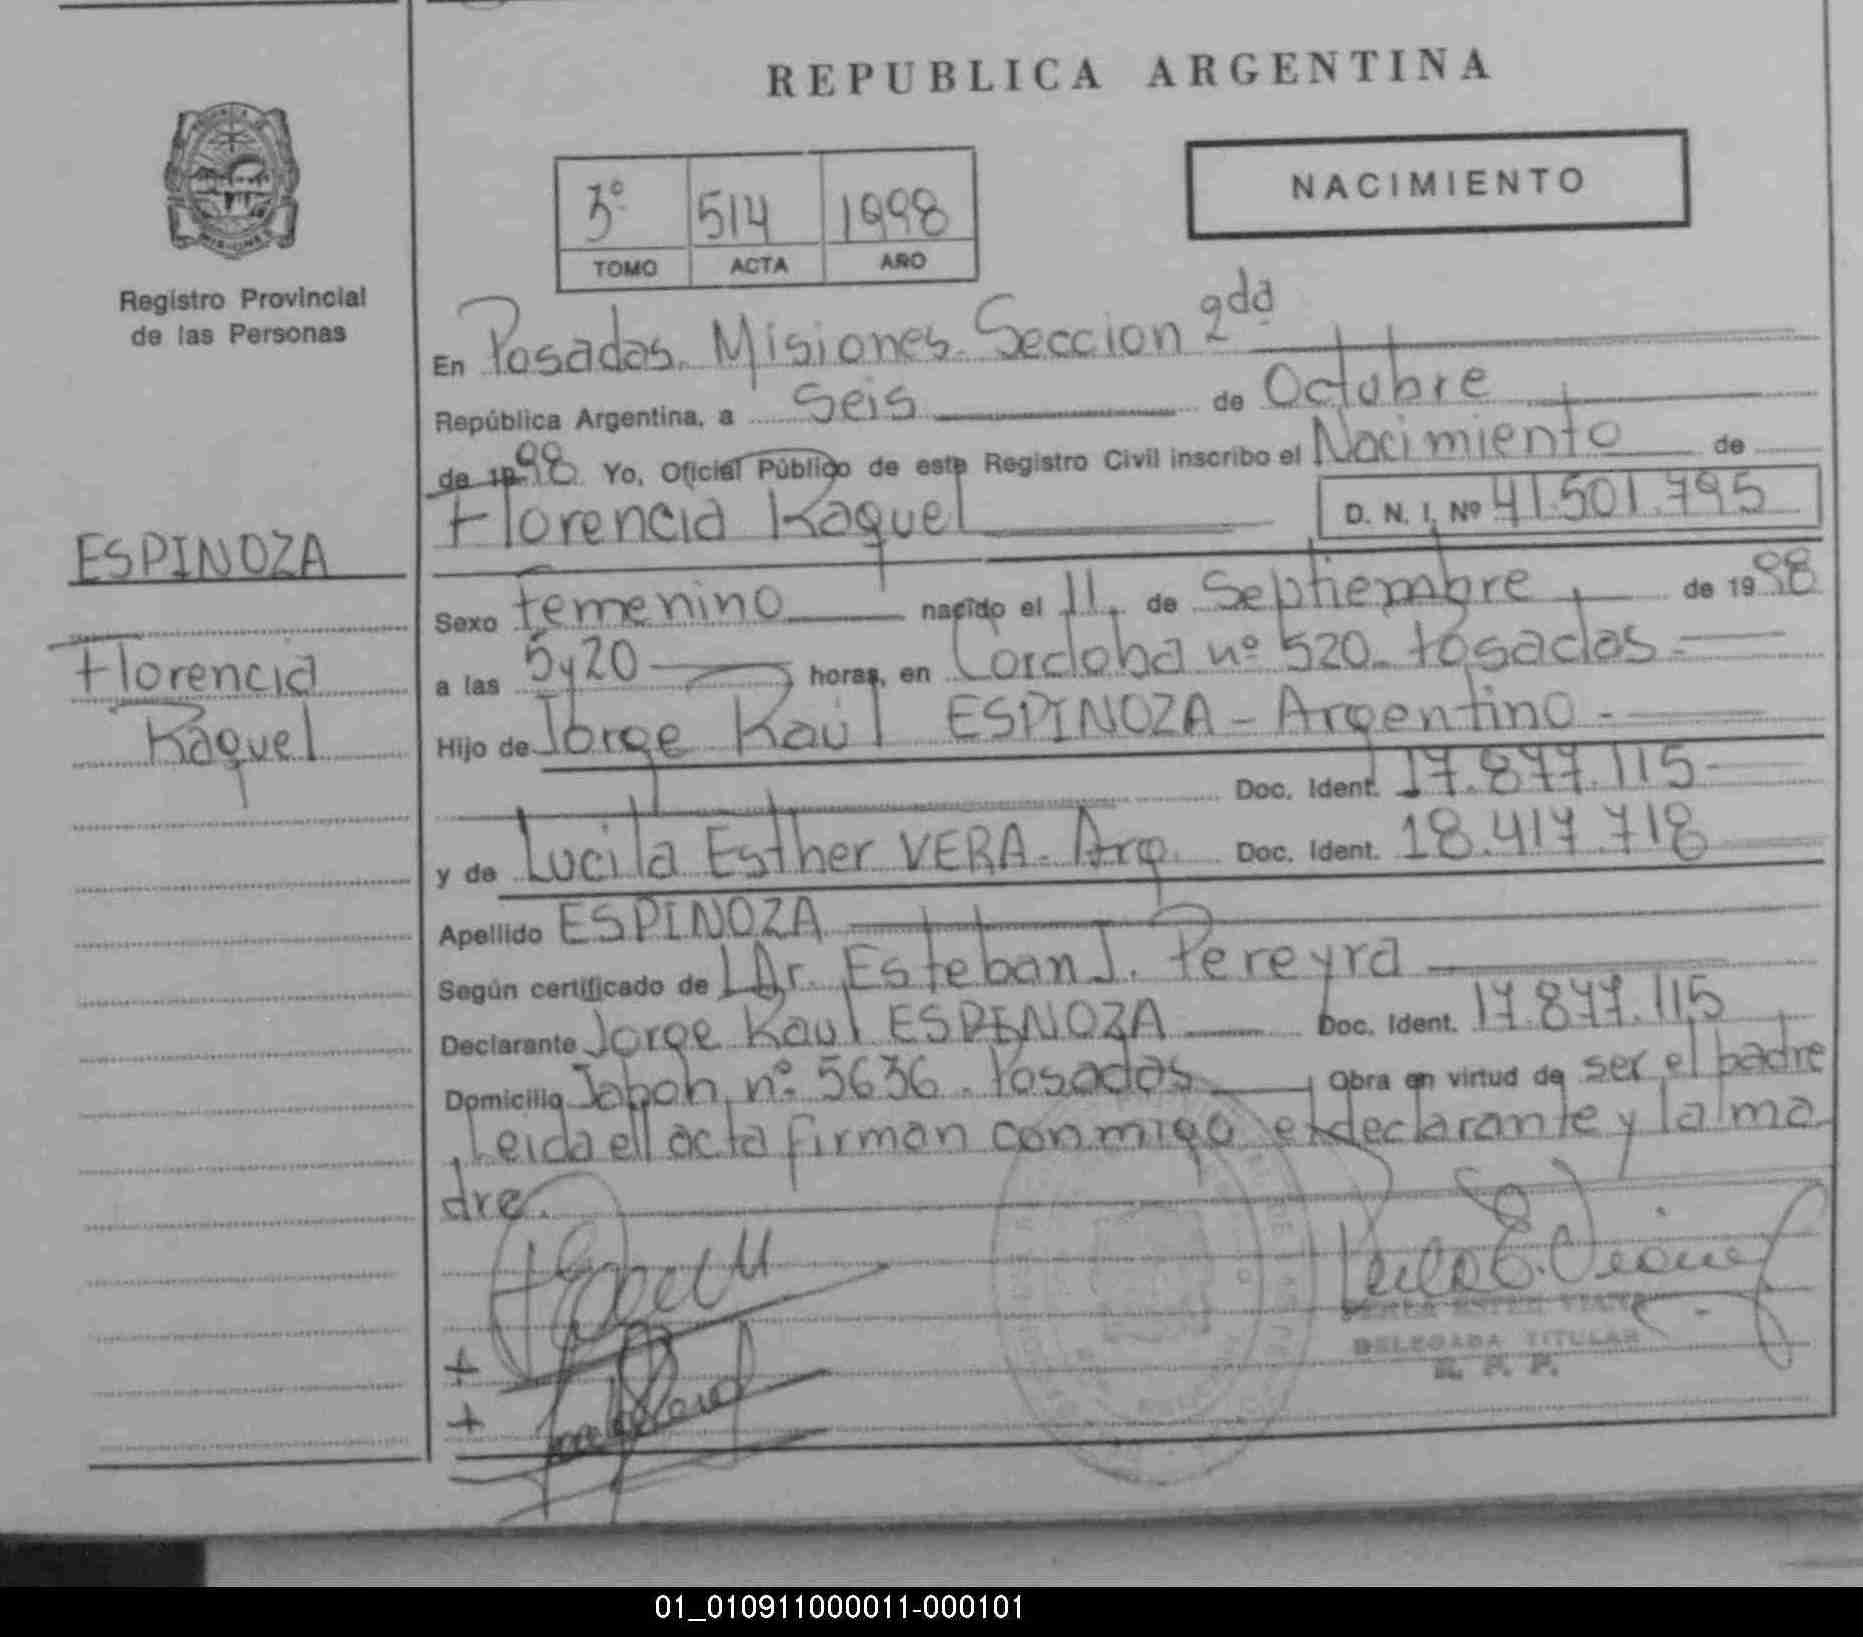 REPUBLICA ARGENTINA
NACIMIENTO
3º 514 1998
TOMO ACTA AÑO
Registro Provincial
de las Personas
ESPINOZA
Florencia
Raquel
En Posadas. Misiones. Seccion 2da
República Argentina, a seis de Octubre
de 1998 Yo, Oficial Público de este Registro Civil inscribo el Nacimiento de
Florencia Raquel D. N. I. Nº 41.501.795
Sexo femenino nacido el 11 de Septiembre de 1998
a las 5y20 horas, en Cordoba nº 520. Posadas
Hijo de Jorge Raúl ESPINOZA - Argentino -
Doc. Ident. 17.877.115
y de Lucila Esther VERA. Arg. Doc. Ident. 18.417.718
Apellido ESPINOZA
Según certificado de Dr. Esteban J. Pereyra
Declarante Jorge Raul ESPINOZA Doc. Ident. 17.877.115
Domicilio Japon nº 5636. Posadas Obra en virtud de ser el padre
Leida el acta firman conmigo el declarante y la ma
dre.
DELEGADA TITULAR
R. P. P.
01_010911000011-000101